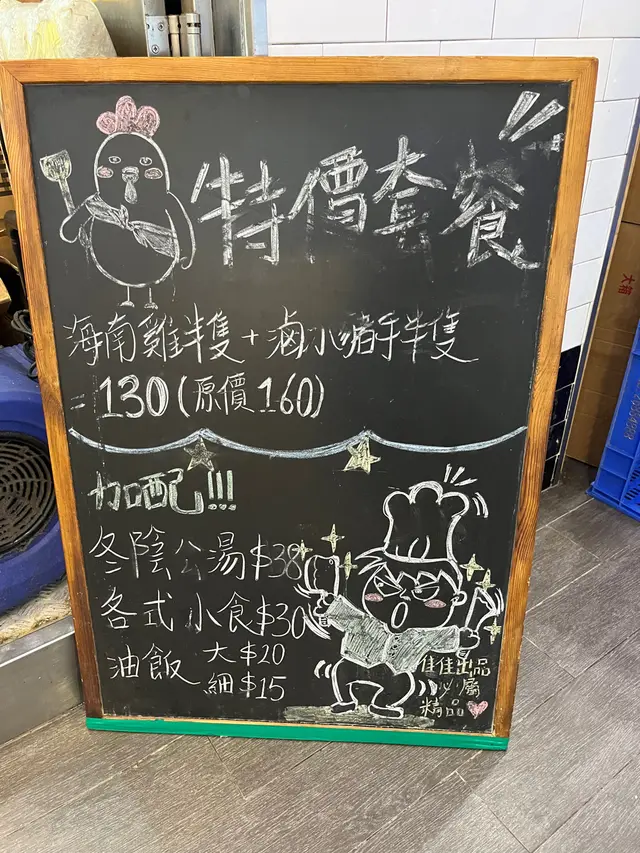 特價套餐
海南雞半隻 + 滷水豬手半隻
= 130 (原價 160)
加配!!!
冬陰公湯 $38
各式小食 $30
油飯 大 $20
細 $15
佳佳出品
必屬
精品